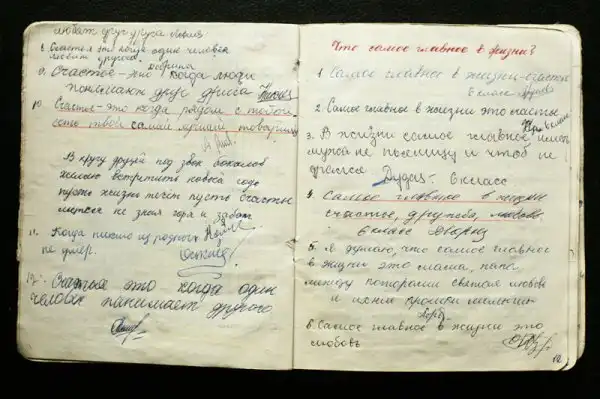 любят друг друга
8. Счастье это когда один человек
любит другова.
9. Счастье - это когда люди
понимают друг друга
10. Счастье - это когда рядом с тобой
есть твой самый лучший товарищ
В кругу друзей под звон бокалов
желаю встретить новый год
пусть жизнь течёт пусть счастье
не зная горя и забот
11. Когда письмо из родного
не умер.
12. Счастье это когда один
человек панимает другого
Что самое главное в жизни?
1 Самое главное в жизни - счастье
6 класс
2. Самое главное в жизни это счастье
3. В жизни самое главное иметь
мужа не пьяницу и чтоб не
дрался Дудась - 6 класс
4. Самое главное в жизни
счастье, дружба, любовь
6 класс
5. Я думаю, что самое главное
в жизни это мама, папа
между которыми святая любовь
и
6. Самое главное в жизни это
любовь
12